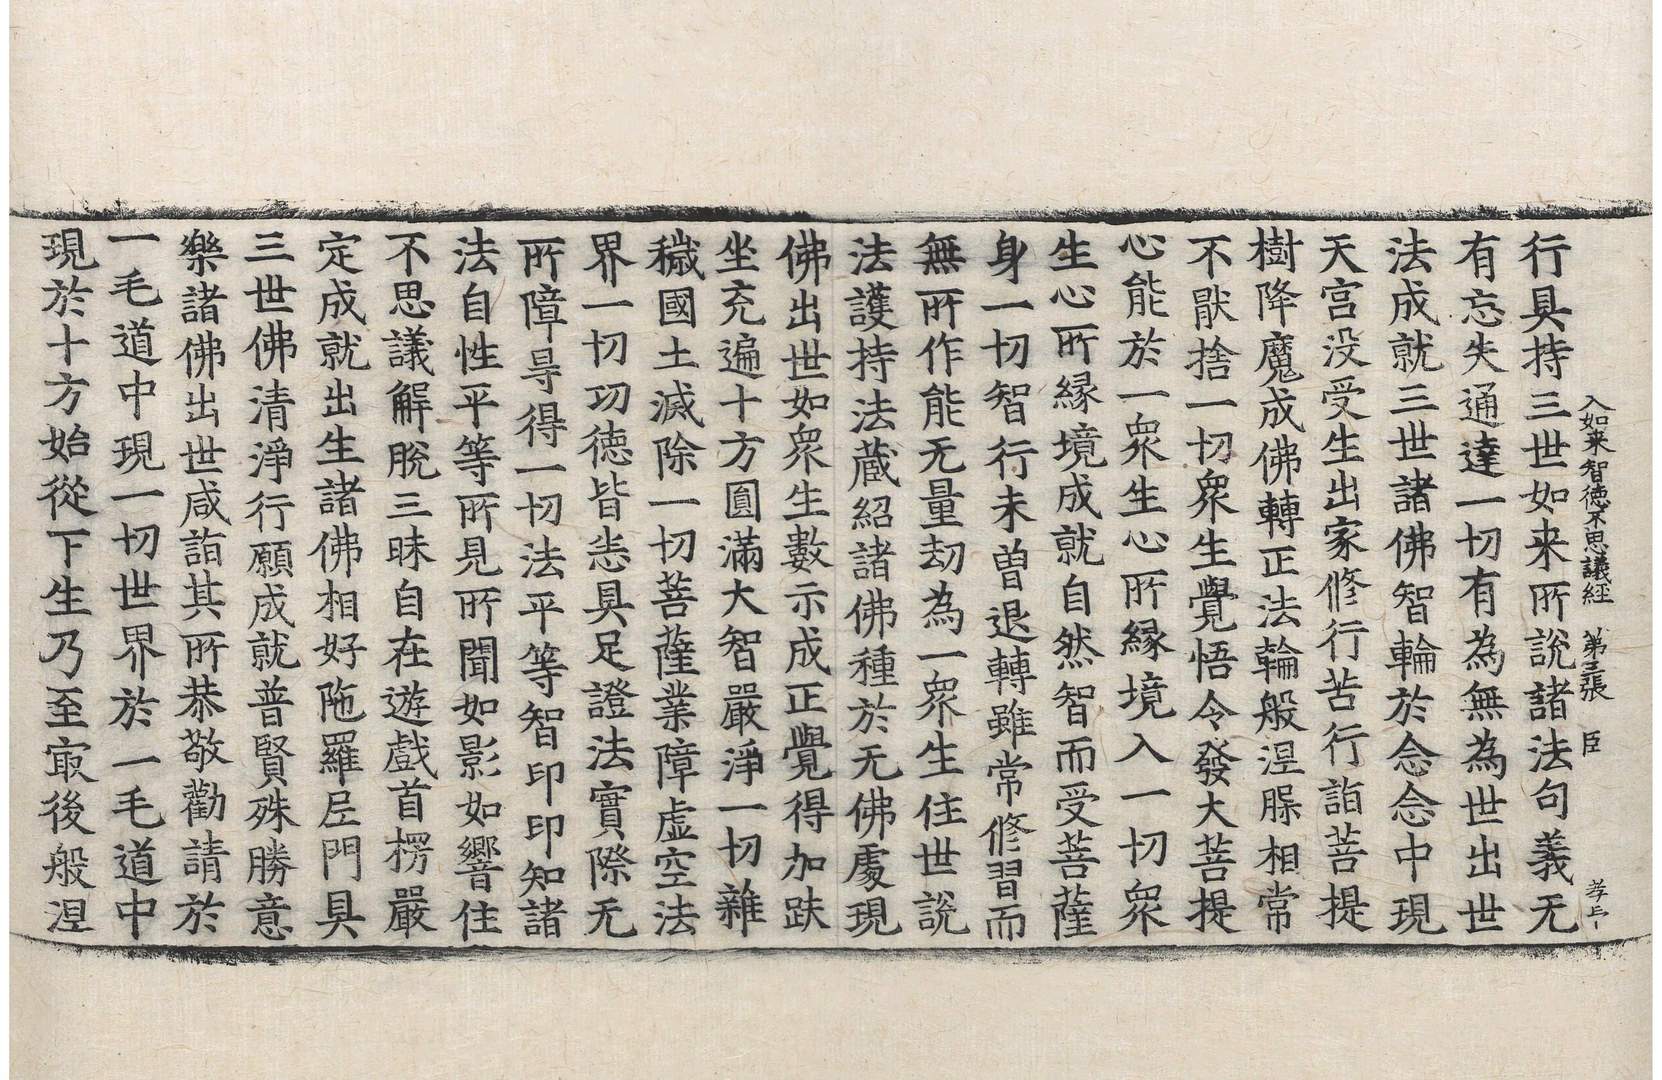 入如来智德不思議經 第三張 臣
行具持三世如来所說諸法句義无
有忘失通達一切有為無為世出世
法成就三世諸佛智輪於念念中現
天宮没受生出家修行苦行詣菩提
樹降魔成佛轉正法輪般涅槃相常
不猒捨一切衆生覺悟令發大菩提
心能於一衆生心所緣境入一切衆
生心所緣境成就自然智而受菩薩
身一切智行未曽退轉雖常修習而
無所作能无量劫為一衆生住世說
法護持法蔵紹諸佛種於无佛處現
佛出世如衆生數示成正覺得加趺
坐充遍十方圓滿大智嚴淨一切雜
穢國土滅除一切菩薩業障虛空法
界一切功德皆悉具足證法實際无
所障㝵得一切法平等智印印知諸
法自性平等所見所聞如影如響住
不思議解脫三昧自在遊戲首楞嚴
定成就出生諸佛相好陁羅尼門具
三世佛清淨行願成就普賢殊勝意
樂諸佛出世咸詣其所恭敬勸請於
一毛道中現一切世界於一毛道中
現於十方始從下生乃至㝡後般涅